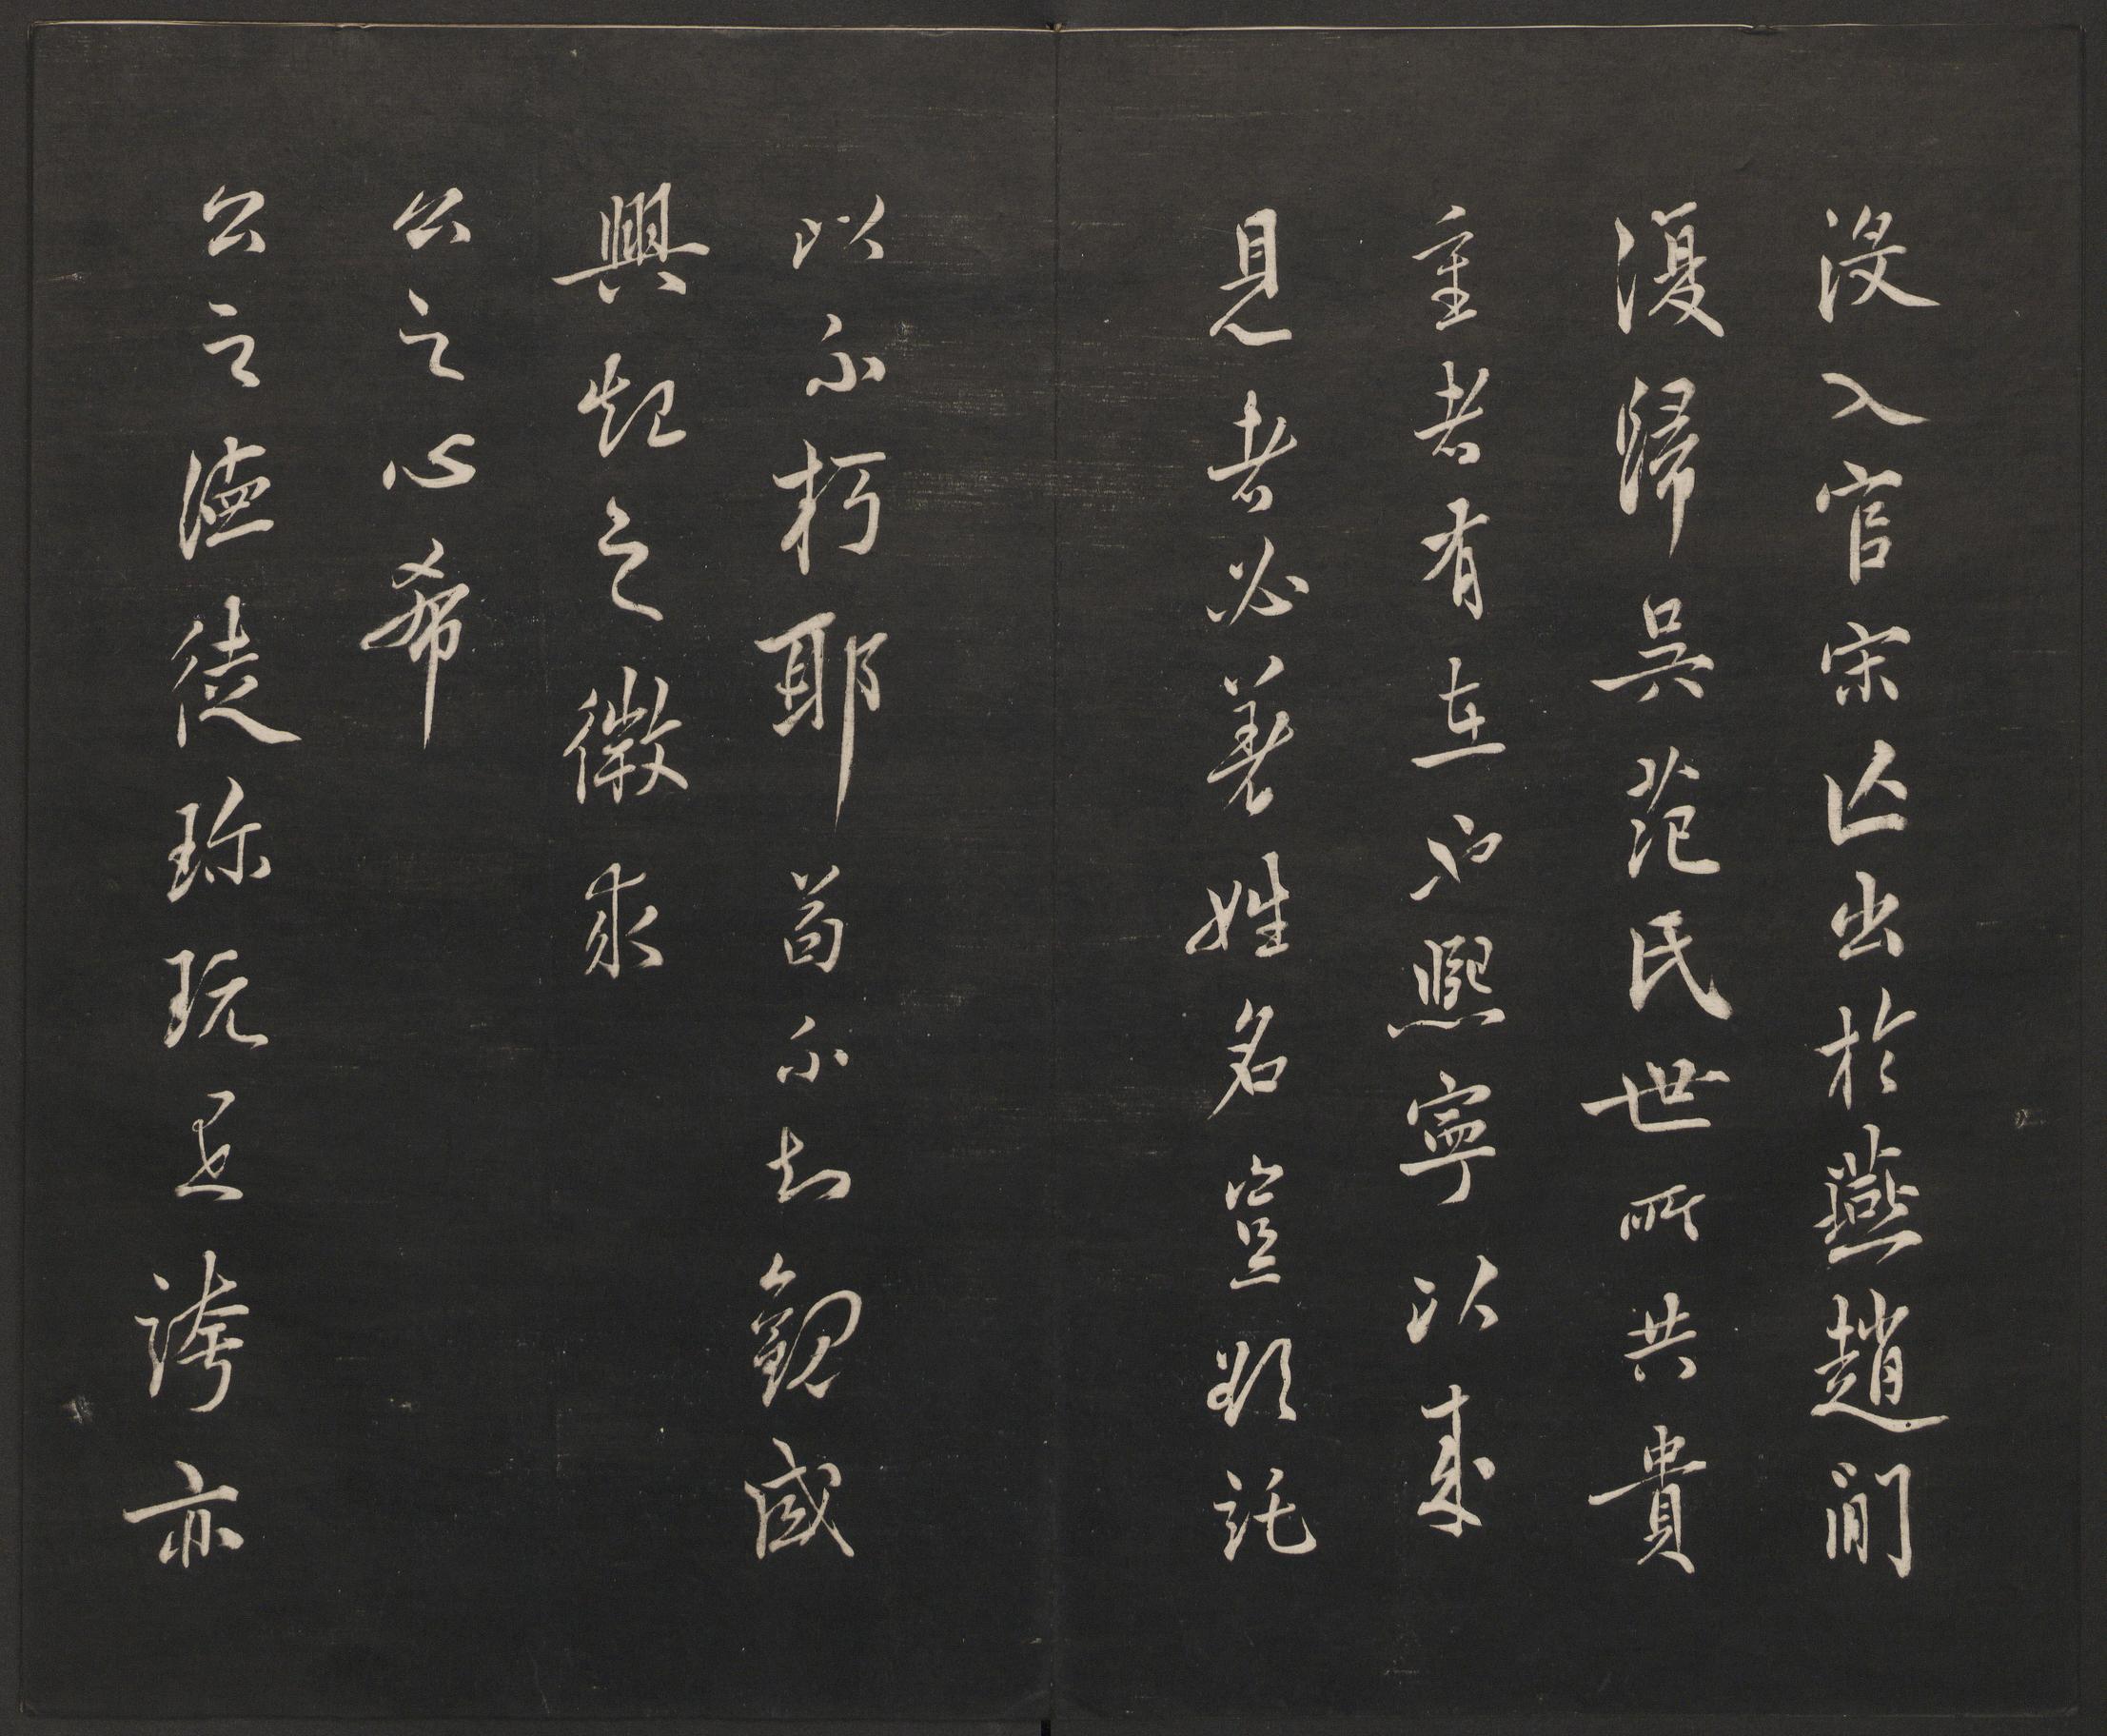 没入官宋亡出於燕趙間
復歸吳范氏世所共貴
重者有在也熙寧以來
見者必著姓名豈欲託
以不朽耶苟不知觀感
興起之徵求
公之心希
公之德徒珍玩是誇亦